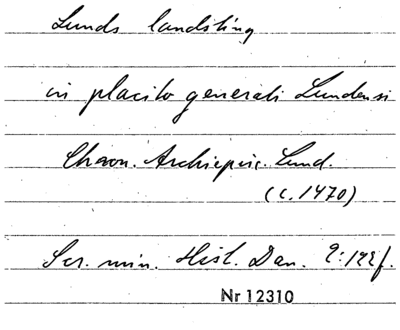 Lunds landsting
in placito generali Lundensi
Chron. Archiepisc. Lund.
(c. 1470)
Scr. min. Hist. Dan. 2:122f.
Nr 12310